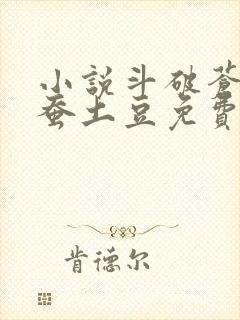 小說斗破蒼
蚕土豆免費
肯德尔